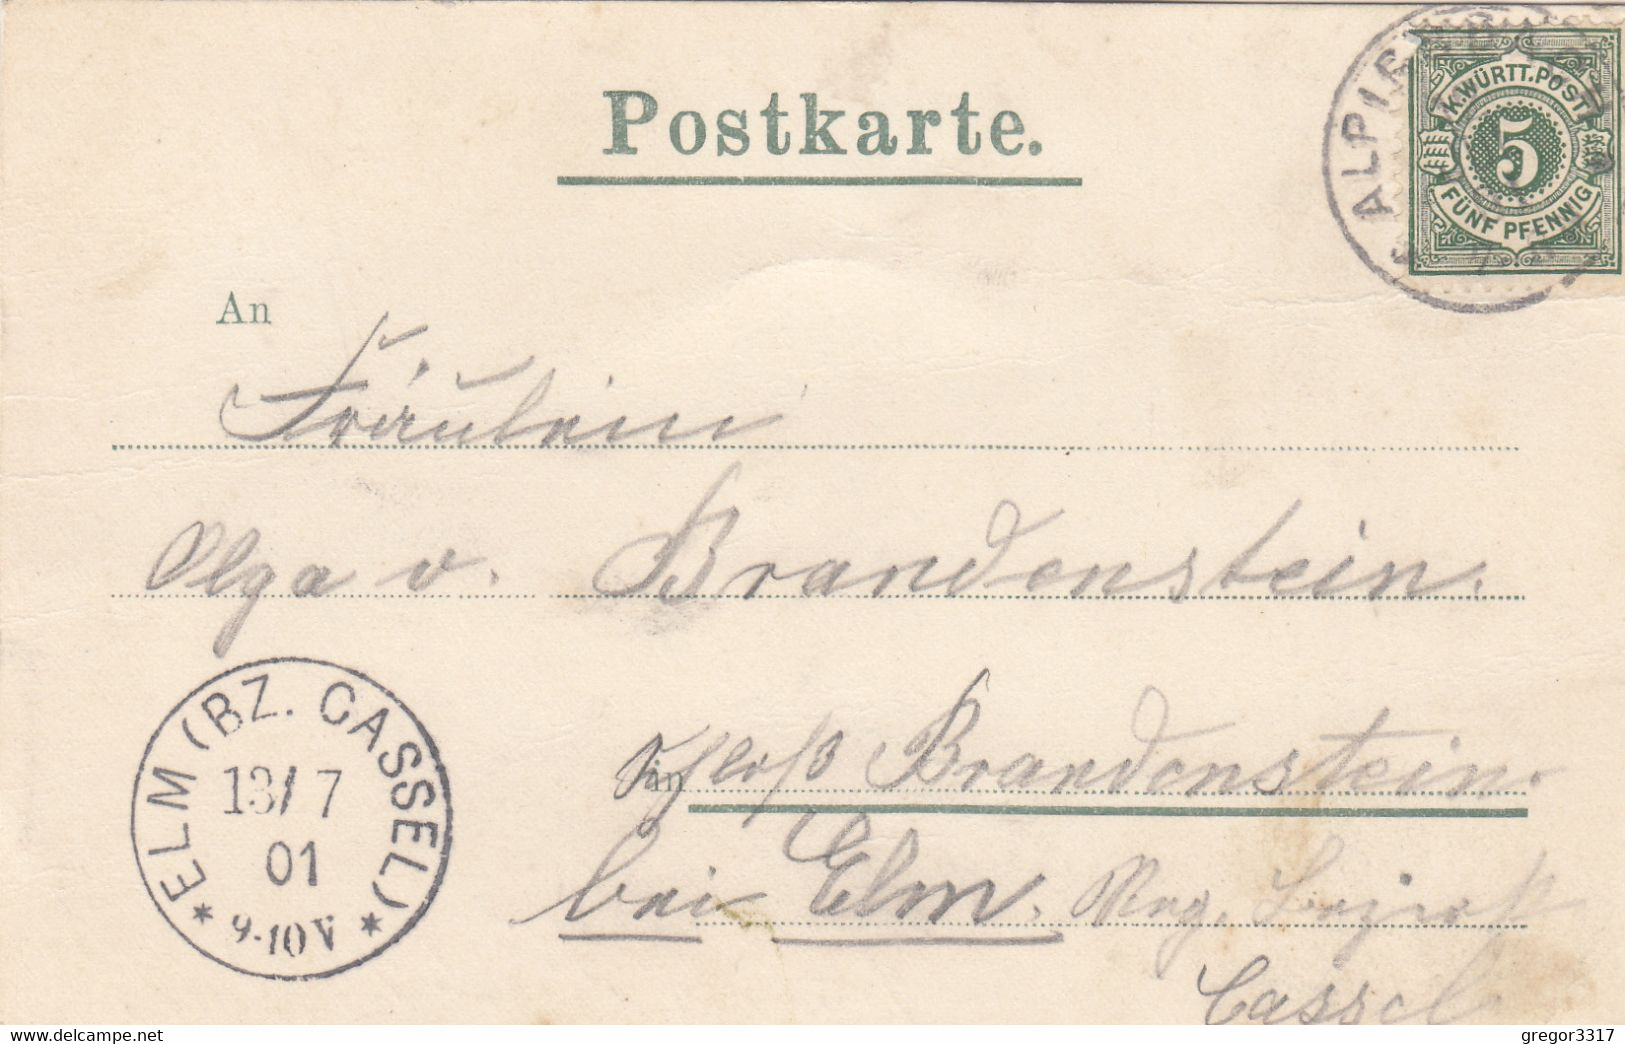 Postkarte.
K. WÜRTT. POST
5
FÜNF PFENNIG
An
Fräulein
Olga v. Brandenstein.
in
Schloß Brandenstein.
bei Elm. Reg. Bezirk
Cassel
ELM (BZ. CASSEL)
13/7
01
* 9-10 V *
www.delcampe.net
gregor3317